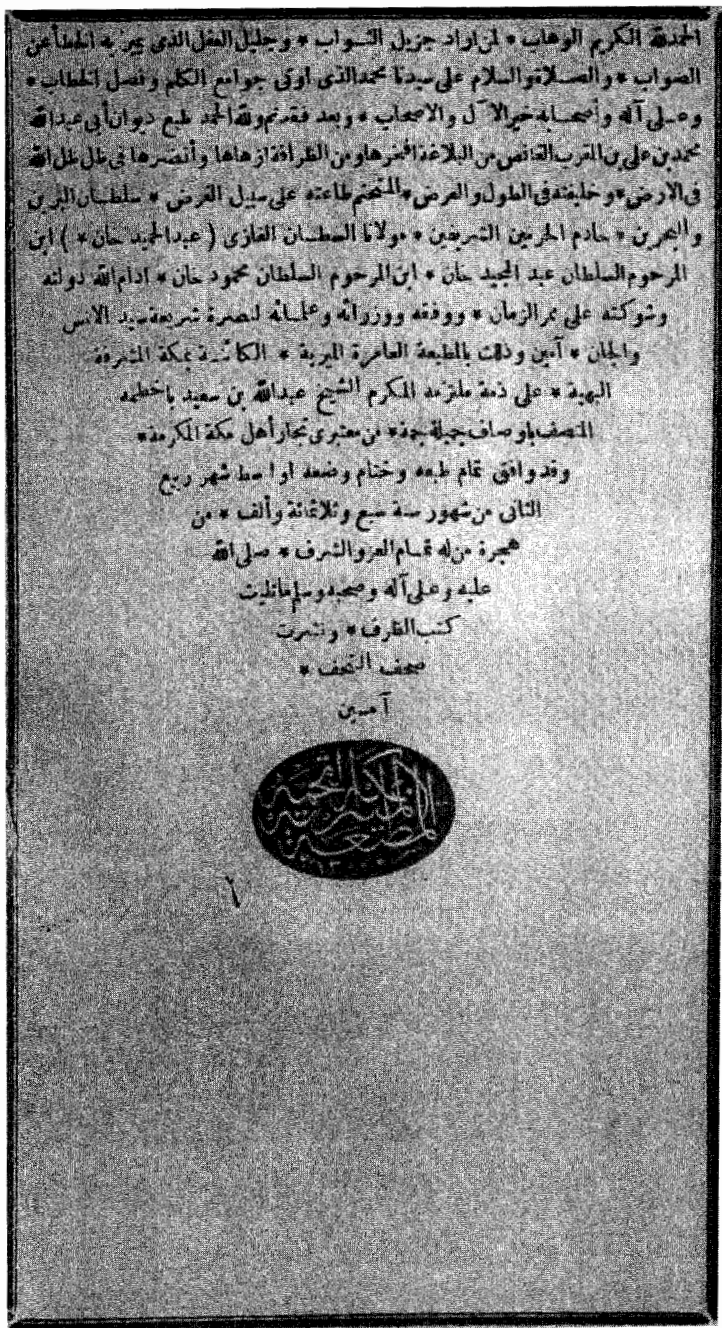 الحمد لله الكريم الوهاب * لمن اراد جزيل الثواب * وجليل العقل الذى يميز به الخطأ عن
الصواب * والصلاة والسلام على سيدنا محمد الذى اوتى جوامع الكلم وفصل الخطاب *
وعلى آله وأصحابه خير الآل والاصحاب * وبعد فقد تم ولله الحمد طبع ديوان أبى عبدالله
محمد بن على بن المقرب القانص من البلاغة افخرها ومن الظرافة ازهاها وأنضرها فى ظل ظل الله
فى الارض * وخليفته فى الطول والعرض * المتحتم طاعته على سبيل الفرض * سلطان البرين
والبحرين * خادم الحرمين الشريفين * مولانا السلطان الغازى ( عبد الحميد خان * ) ابن
المرحوم السلطان عبد المجيد خان * ابن المرحوم السلطان محمود خان * ادام الله دولته
وشوكته على ممر الزمان * ووفقه ووزرائه وعلمائه لنصرة شريعة سيد الانس
والجان * آمين وذلك بالمطبعة العامرة الميرية * الكائنة بمكة المشرفة
البهية * على ذمة ملتزمه المكرم الشيخ عبدالله بن سعيد باخطمه
المتصف باوصاف جميلة جمة * من معتبرى تجار أهل مكة المكرمة *
وقد وافق تمام طبعه وختام وضعه اواسط شهر ربيع
الثانى من شهور سنة سبع وثلاثمائة وألف * من
هجرة من له تمام العز والشرف * صلى الله
عليه وعلى آله وصحبه وسلم ما تليت
كتب الظرف * ونشرت
صحف التحف *
آمين
٦